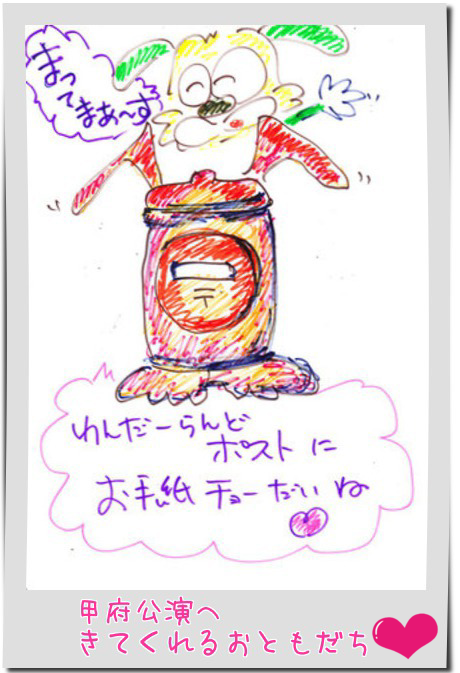 まって
まぁ〜す
〒
わんだーらんど
ポストに
お手紙チョーだいね
甲府公演へ
きてくれるおともだち